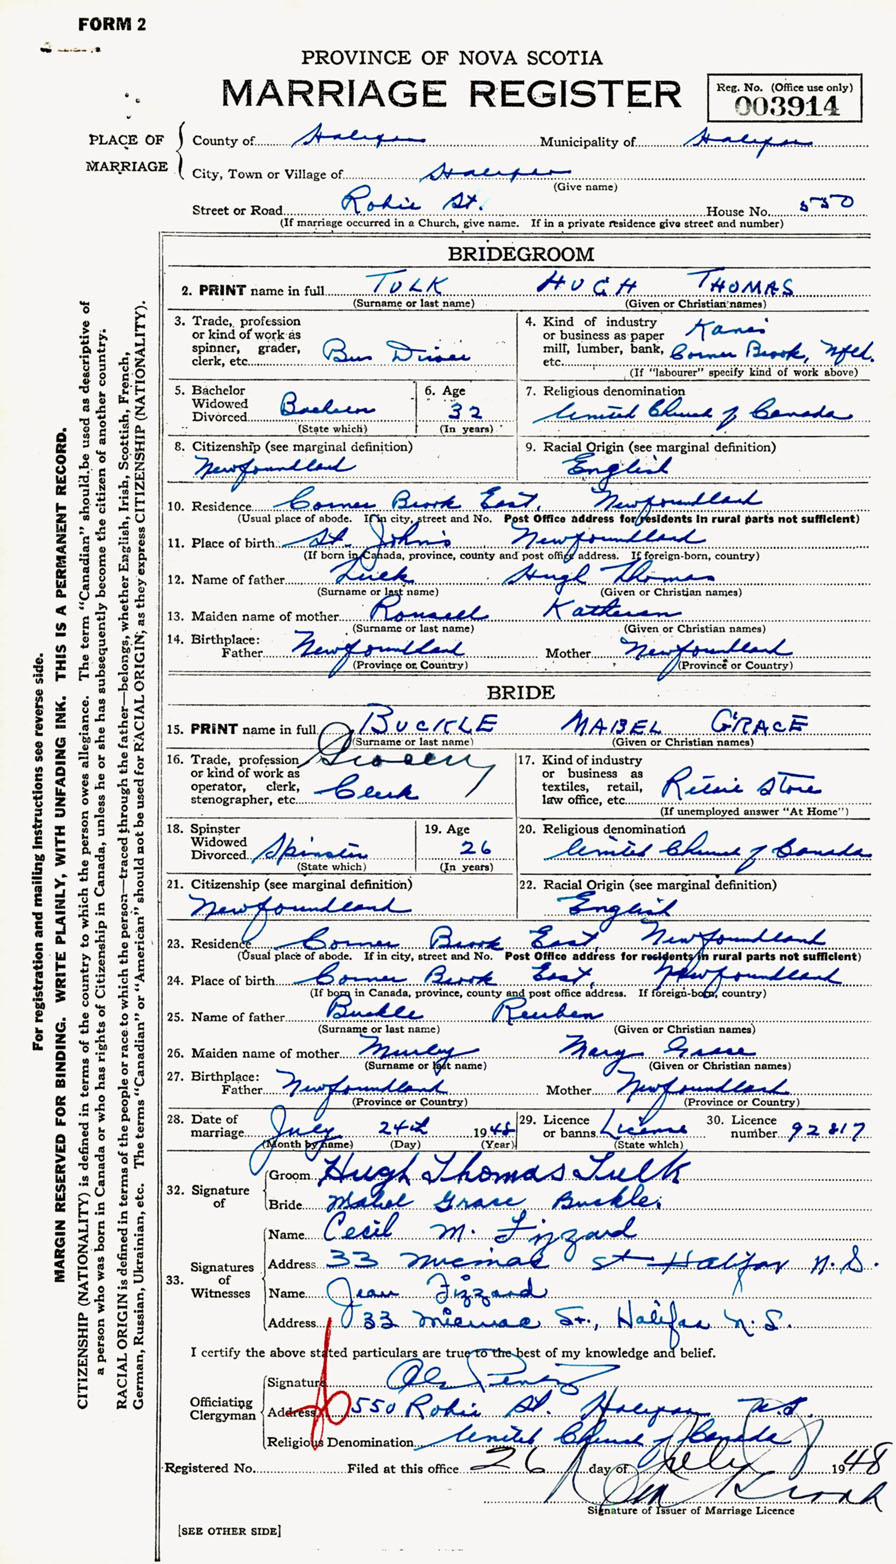 FORM 2
PROVINCE OF NOVA SCOTIA
MARRIAGE REGISTER
Reg. No. (Office use only)
003914
PLACE OF MARRIAGE
County of Halifax Municipality of Halifax
City, Town or Village of Halifax
(Give name)
Street or Road Robie St. House No. 550
(If marriage occurred in a Church, give name. If in a private residence give street and number)
BRIDEGROOM
2. PRINT name in full TULK HUGH THOMAS
(Surname or last name) (Given or Christian names)
3. Trade, profession or kind of work as spinner, grader, clerk, etc. Bus Driver
4. Kind of industry or business as paper mill, lumber, bank, etc. Corner Brook, Nfld.
(If "labourer" specify kind of work above)
5. Bachelor Widowed Divorced Bachelor
(State which)
6. Age 32
(In years)
7. Religious denomination
United Church of Canada
8. Citizenship (see marginal definition)
Newfoundland
9. Racial Origin (see marginal definition)
English
10. Residence Corner Brook East, Newfoundland
(Usual place of abode. If in city, street and No. Post Office address for residents in rural parts not sufficient)
11. Place of birth St. John's Newfoundland
(If born in Canada, province, county and post office address. If foreign-born, country)
12. Name of father Tulk Hugh Thomas
(Surname or last name) (Given or Christian names)
13. Maiden name of mother Katheren
(Surname or last name) (Given or Christian names)
14. Birthplace:
Father Newfoundland Mother Newfoundland
(Province or Country) (Province or Country)
BRIDE
15. PRINT name in full BUCKLE MABEL GRACE
(Surname or last name) (Given or Christian names)
16. Trade, profession or kind of work as operator, clerk, stenographer, etc. Grocery Clerk
17. Kind of industry or business as textiles, retail, law office, etc. Store
(If unemployed answer "At Home")
18. Spinster Widowed Divorced Spinster
(State which)
19. Age 26
(In years)
20. Religious denomination
United Church of Canada
21. Citizenship (see marginal definition)
Newfoundland
22. Racial Origin (see marginal definition)
English
23. Residence Corner Brook East, Newfoundland
(Usual place of abode. If in city, street and No. Post Office address for residents in rural parts not sufficient)
24. Place of birth Corner Brook East, Newfoundland
(If born in Canada, province, county and post office address. If foreign-born, country)
25. Name of father Buckle Reuben
(Surname or last name) (Given or Christian names)
26. Maiden name of mother Mary Grace
(Surname or last name) (Given or Christian names)
27. Birthplace:
Father Newfoundland Mother Newfoundland
(Province or Country) (Province or Country)
28. Date of marriage July 24th 1948
(Month by name) (Day) (Year)
29. Licence or banns License
(State which)
30. Licence number 92817
32. Signature of
Groom Hugh Thomas Tulk
Bride Mabel Grace Buckle
33. Signatures of Witnesses
Name Cecil M. Fizzard
Address 33 Micmac St Halifax N.S.
Name Jean Fizzard
Address 33 Micmac St., Halifax N.S.
I certify the above stated particulars are true to the best of my knowledge and belief.
Officiating Clergyman
Signature
Address 550 Robie St. Halifax N.S.
Religious Denomination United Church of Canada
Registered No. Filed at this office 26 day of July 1948
Signature of Issuer of Marriage Licence
[SEE OTHER SIDE]
For registration and mailing instructions see reverse side.
MARGIN RESERVED FOR BINDING. WRITE PLAINLY, WITH UNFADING INK. THIS IS A PERMANENT RECORD.
CITIZENSHIP (NATIONALITY) is defined in terms of the country to which the person owes allegiance. The term "Canadian" should be used as descriptive of
a person who was born in Canada or who has rights of Citizenship in Canada, unless he or she has subsequently become the citizen of another country.
RACIAL ORIGIN is defined in terms of the people or race to which the person—traced through the father—belongs, whether English, Irish, Scottish, French,
German, Russian, Ukrainian, etc. The terms "Canadian" or "American" should not be used for RACIAL ORIGIN, as they express CITIZENSHIP (NATIONALITY).